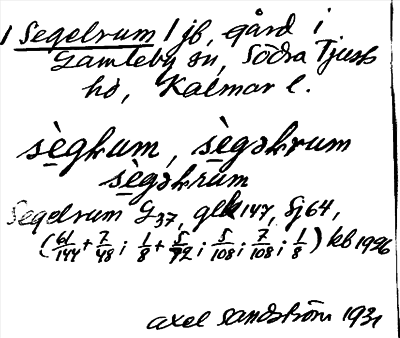 / Segelrum / jb, gård i
Gamleby sn, Södra Tjusts
hd, Kalmar l.
sègrum, sègəkrum
sègəkrum
Segelrum G37, glk147, Sj64,
(61/144 + 7/48; 1/8 + 5/72; 5/108; 7/108; 1/8) kb 1926
Axel Sandström 1931